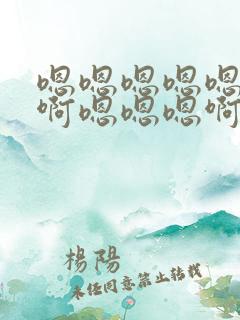 嗯嗯嗯嗯嗯
啊嗯嗯嗯啊
楊陽
未经同意禁止转载